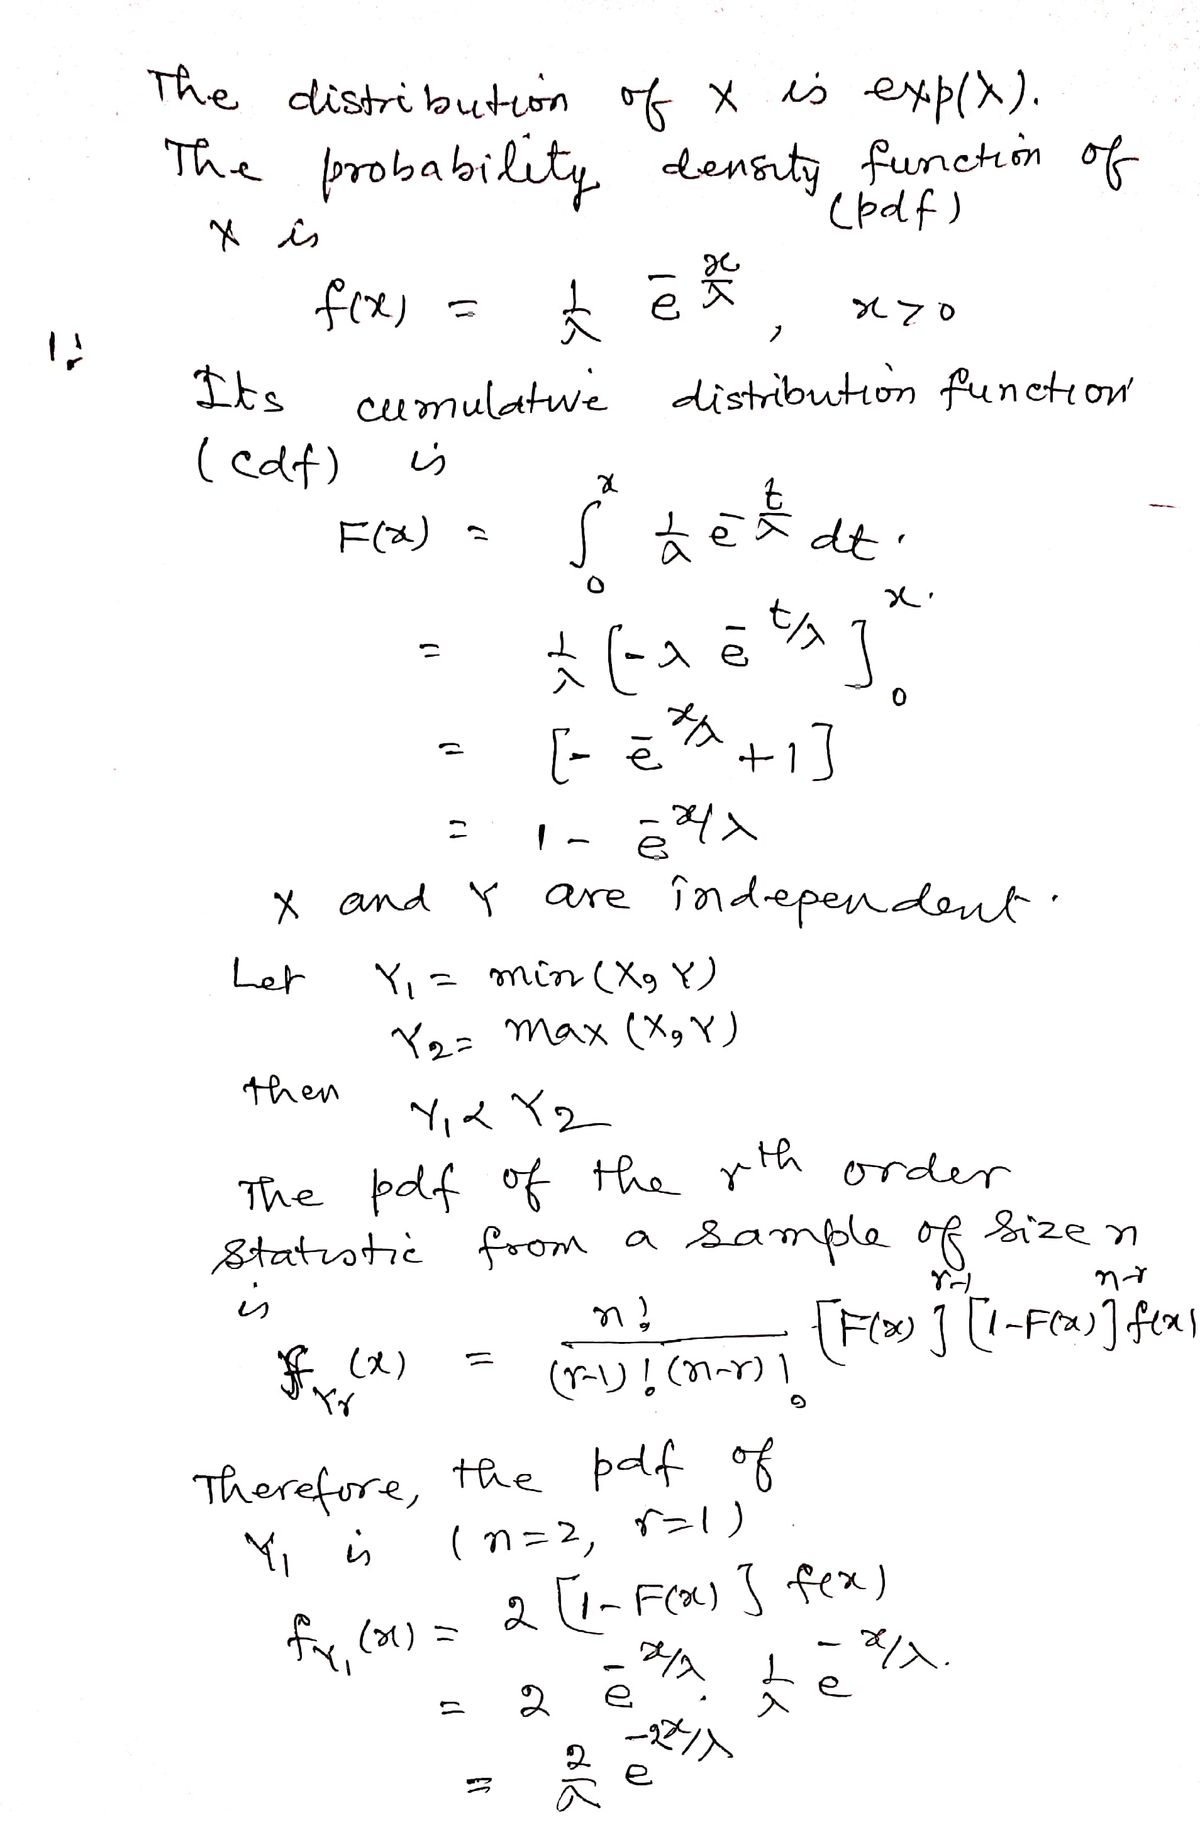 The distribution of X is exp(λ).
The probability density function of
(pdf)
X is
f(x) = 1/λ e^{-x/λ}, x>0
1:
Its cumulative distribution function
(cdf) is
F(x) = ∫_0^x 1/λ e^{-t/λ} dt.
= 1/λ [-λ e^{-t/λ}]_0^x.
= [- e^{-x/λ} +1]
= 1 - e^{-x/λ}
X and Y are independent.
Let Y₁ = min(X, Y)
Y₂ = max (X, Y)
then
Y₁ < Y₂
The pdf of the rth order
statistic from a sample of size n
is
f_{Yr}(x) = n!/((r-1)! (n-r)!) [F(x)]^{r-1} [1-F(x)]^{n-r} f(x)
Therefore, the pdf of
Y₁ is (n=2, r=1)
f_{Y₁}(x) = 2 [1-F(x)] f(x)
= 2 e^{-x/λ} . 1/λ e^{-x/λ}.
= 2/λ e^{-2x/λ}